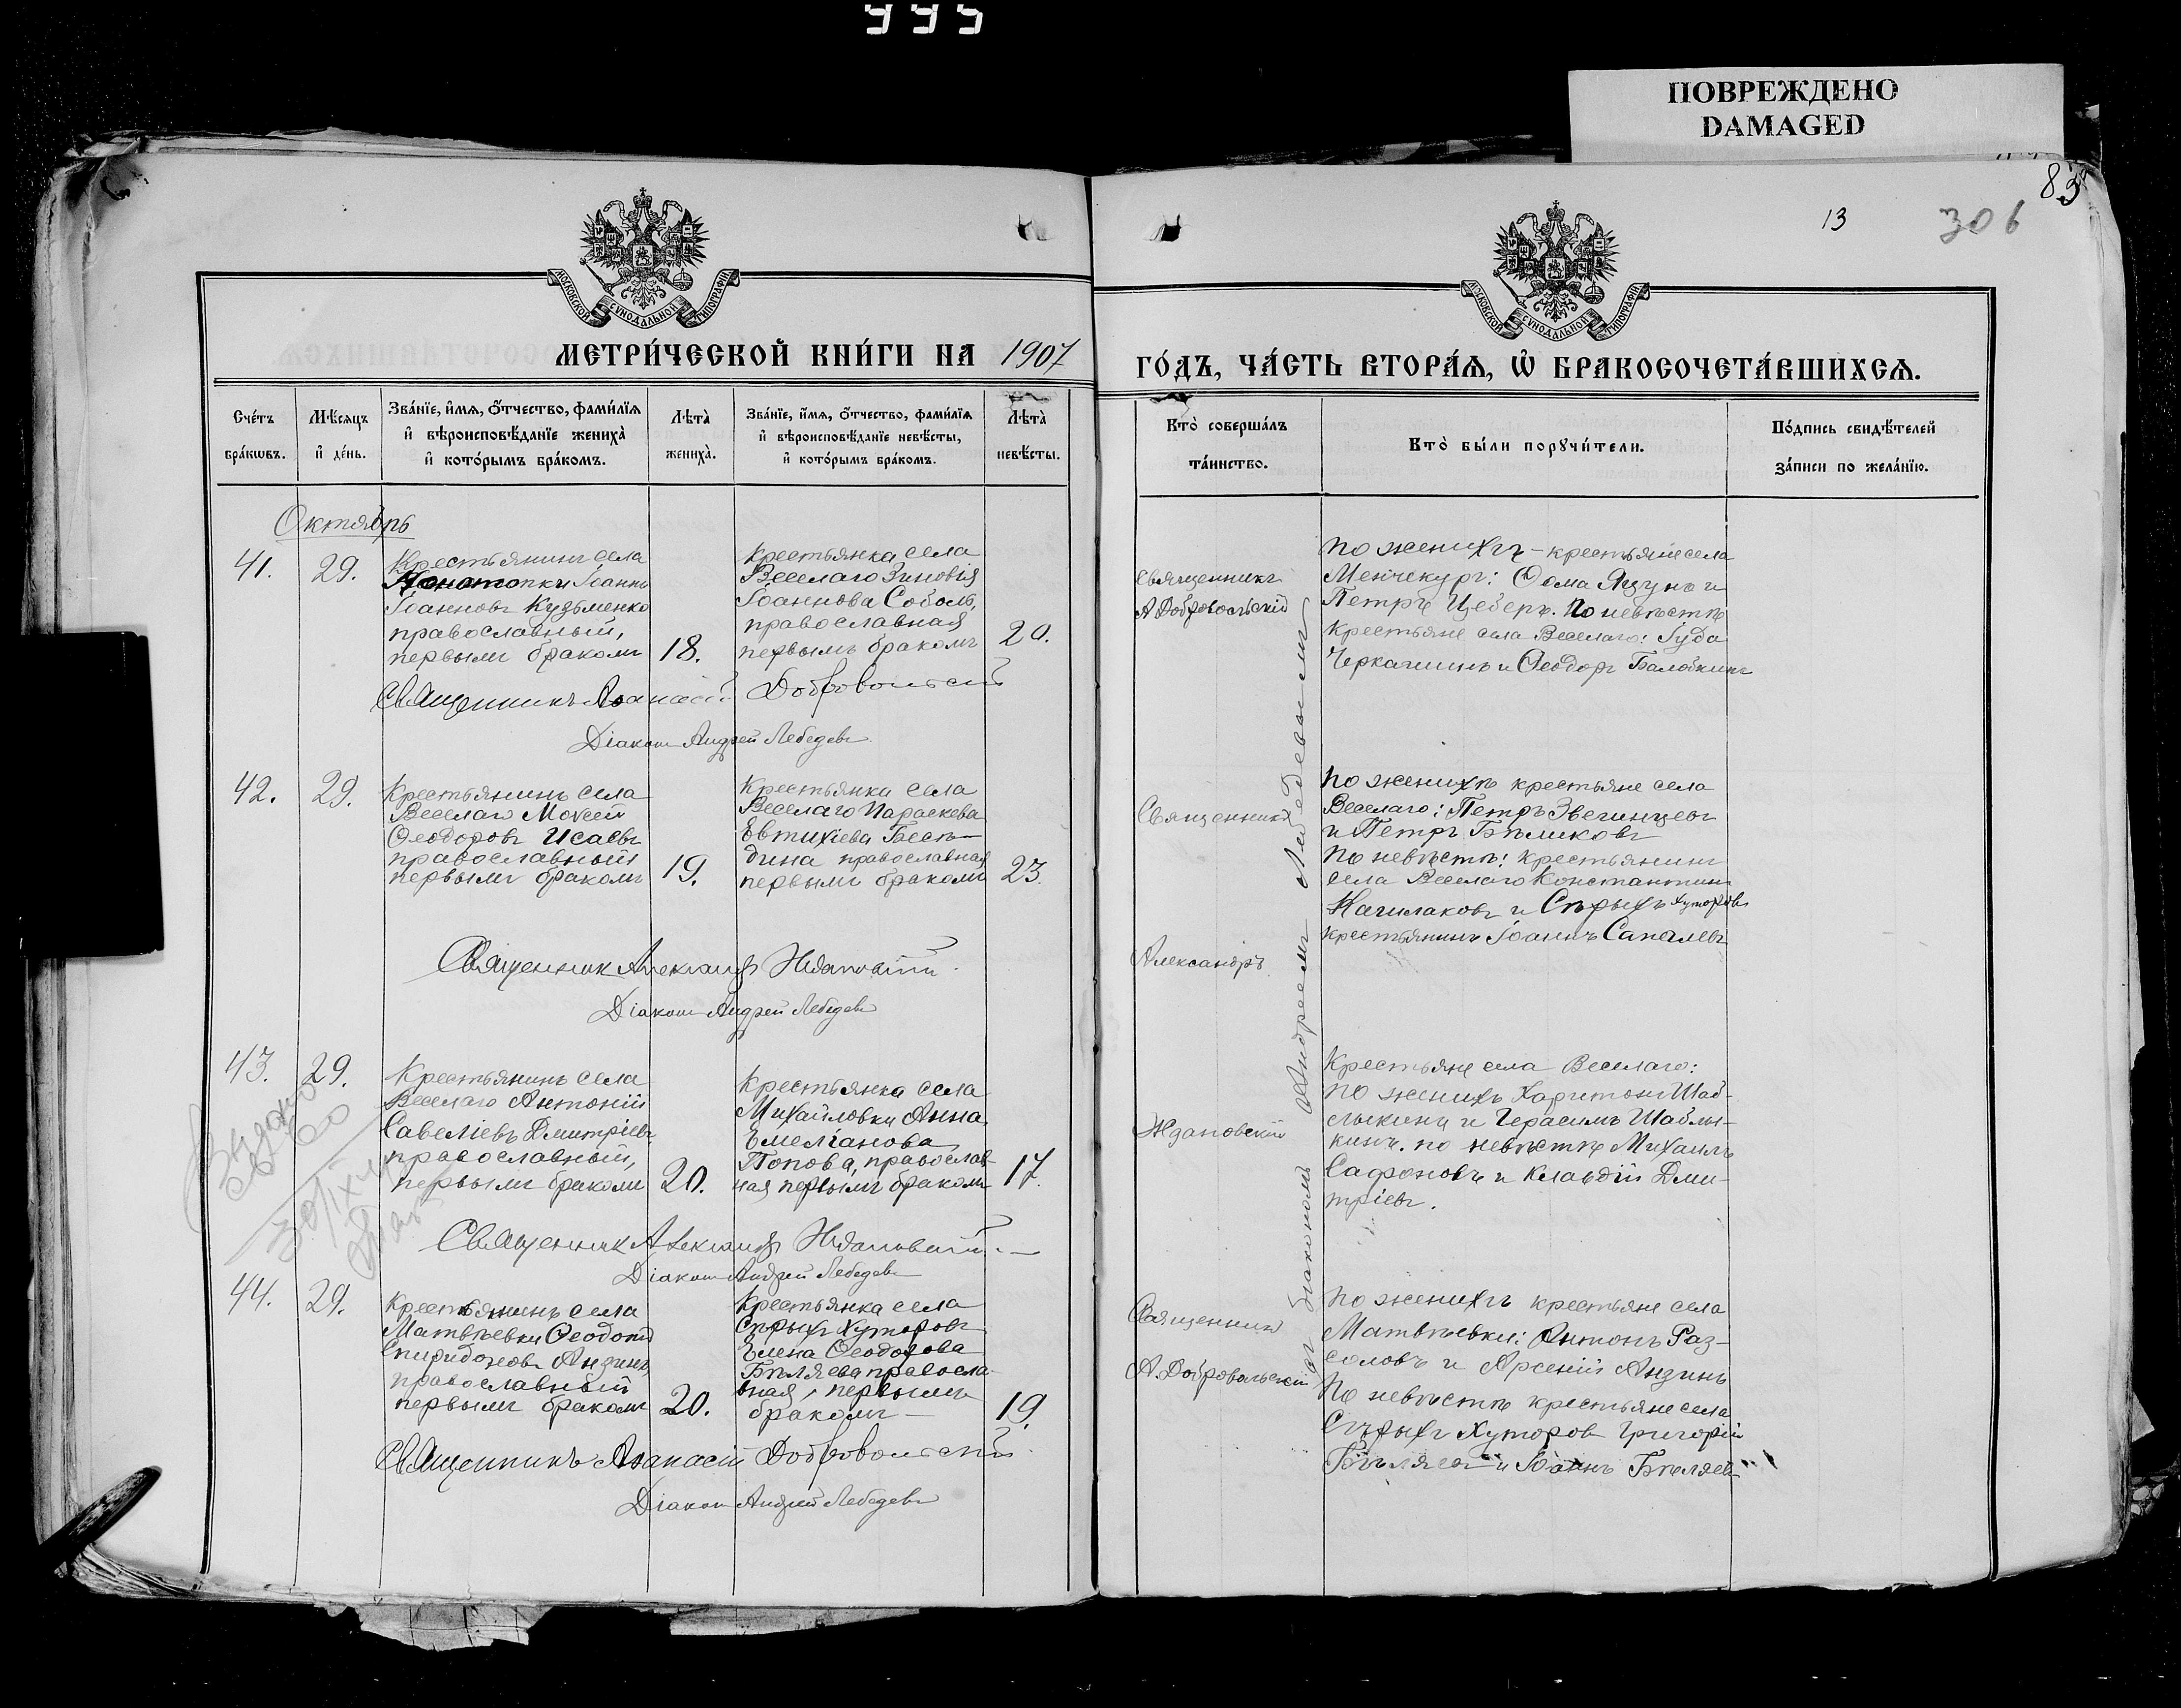 995
ПОВРЕЖДЕНО
DAMAGED
83
13
306
МОСКОВСКОЙ СѴНОДАЛЬНОЙ ТИПОГРАФІИ
МОСКОВСКОЙ СѴНОДАЛЬНОЙ ТИПОГРАФІИ
МЕТРИ́ЧЕСКОЙ КНИ́ГИ НА 1907
ГО́ДЪ, ЧА́СТЬ ВТОРА́Ѧ, Ѡ҆ БРАКОСОЧЕТА́ВШИХСѦ.
Сче́тъ
бра́кѡвъ.
Мѣ́сѧцъ
и҆ де́нь.
Зва́нїе, и҆́мѧ, ѻ҆́тчество, фами́лїѧ
и҆ вѣроисповѣ́данїе жениха̀
и҆ кото́рымъ бра́комъ.
Лѣта̀
жениха̀.
Зва́нїе, и҆́мѧ, ѻ҆́тчество, фами́лїѧ
и҆ вѣроисповѣ́данїе невѣ́сты,
и҆ кото́рымъ бра́комъ.
Лѣта̀
невѣ́сты.
Кто̀ соверша́лъ
та́инство.
Кто̀ бы́ли порꙋчи́тели.
По́дпись свидѣ́телей
за́писи по жела́нїю.
Октябрь
41.
29.
Крестьянинъ села
Конотопки Іоаннъ
Іоанновъ Кузьменко
православный,
первымъ бракомъ
18.
Крестьянка села
Веселаго Зиновія
Іоаннова Соболь,
православная
первымъ бракомъ
20.
Священникъ
А Добровольскій
По женихѣ – крестьяне села
Менчекуръ: Ѳома Яцуно и
Петръ Цеберъ. По невѣстѣ
крестьяне села Веселаго: Іуда
Черкашинъ и Ѳеодоръ Балобкинъ
Священникъ Аѳанасій Добровольскій
Діаконъ Андрей Лебедевъ
42.
29.
Крестьянинъ села
Веселаго Моисей
Ѳеодоровъ Исаевъ
православный
первымъ бракомъ
19.
Крестьянка села
Веселаго Параскева
Евтихіева Бесѣ-
дина православная
первымъ бракомъ
23.
Священникъ
Александръ
По женихѣ крестьяне села
Веселаго: Петръ Звегинцевъ
и Петръ Бѣликовъ
По невѣстѣ: крестьянинъ
села Веселаго Константинъ
и Сѣрыхъ хуторовъ
крестьянинъ Іоаннъ Сапелевъ
Священникъ Александръ Ждановскій
Діаконъ Андрей Лебедевъ
43.
29.
Крестьянинъ села
Веселаго Антоній
Савеліевъ Дмитріевъ
православный,
первымъ бракомъ
20.
Крестьянка села
Михайловки Анна
Емеліанова
Попова, православ-
ная первымъ бракомъ
17.
Ждановскій
Крестьяне села Веселаго:
По женихѣ Харитонъ Шаб-
лыкинъ и Герасимъ Шаблы-
кинъ. по невѣстѣ Михаилъ
Сафоновъ и Клавдій Дми-
тріевъ.
Священникъ Александръ Ждановскій
Діаконъ Андрей Лебедевъ
съ діакономъ Андреемъ Лебедевымъ
44.
29.
Крестьянинъ села
Матвѣевки Ѳеодотъ
Спиридоновъ Анзинъ,
православный
первымъ бракомъ
20.
Крестьянка села
Сѣрыхъ Хуторовъ
Елена Ѳеодорова
Бѣляева правосла-
вная, первымъ
бракомъ
19.
Священникъ
А. Добровольскій
По женихѣ крестьяне села
Матвѣевки: Антонъ Раз-
соловъ и Арсеній Анзинъ
По невѣстѣ крестьяне села
Сѣрыхъ Хуторовъ Григорій
Бѣляевъ и Іоаннъ Бѣляевъ
Священникъ Аѳанасій Добровольскій
Діаконъ Андрей Лебедевъ